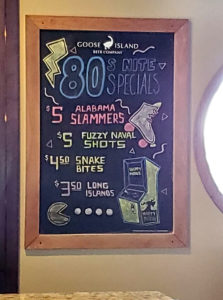 GOOSE ISLAND
BEER COMPANY
80s NITE
SPECIALS
$5 ALABAMA
SLAMMERS
$5 FUZZY NAVAL
SHOTS
$4.50 SNAKE
BITES
$3.50 LONG
ISLANDS